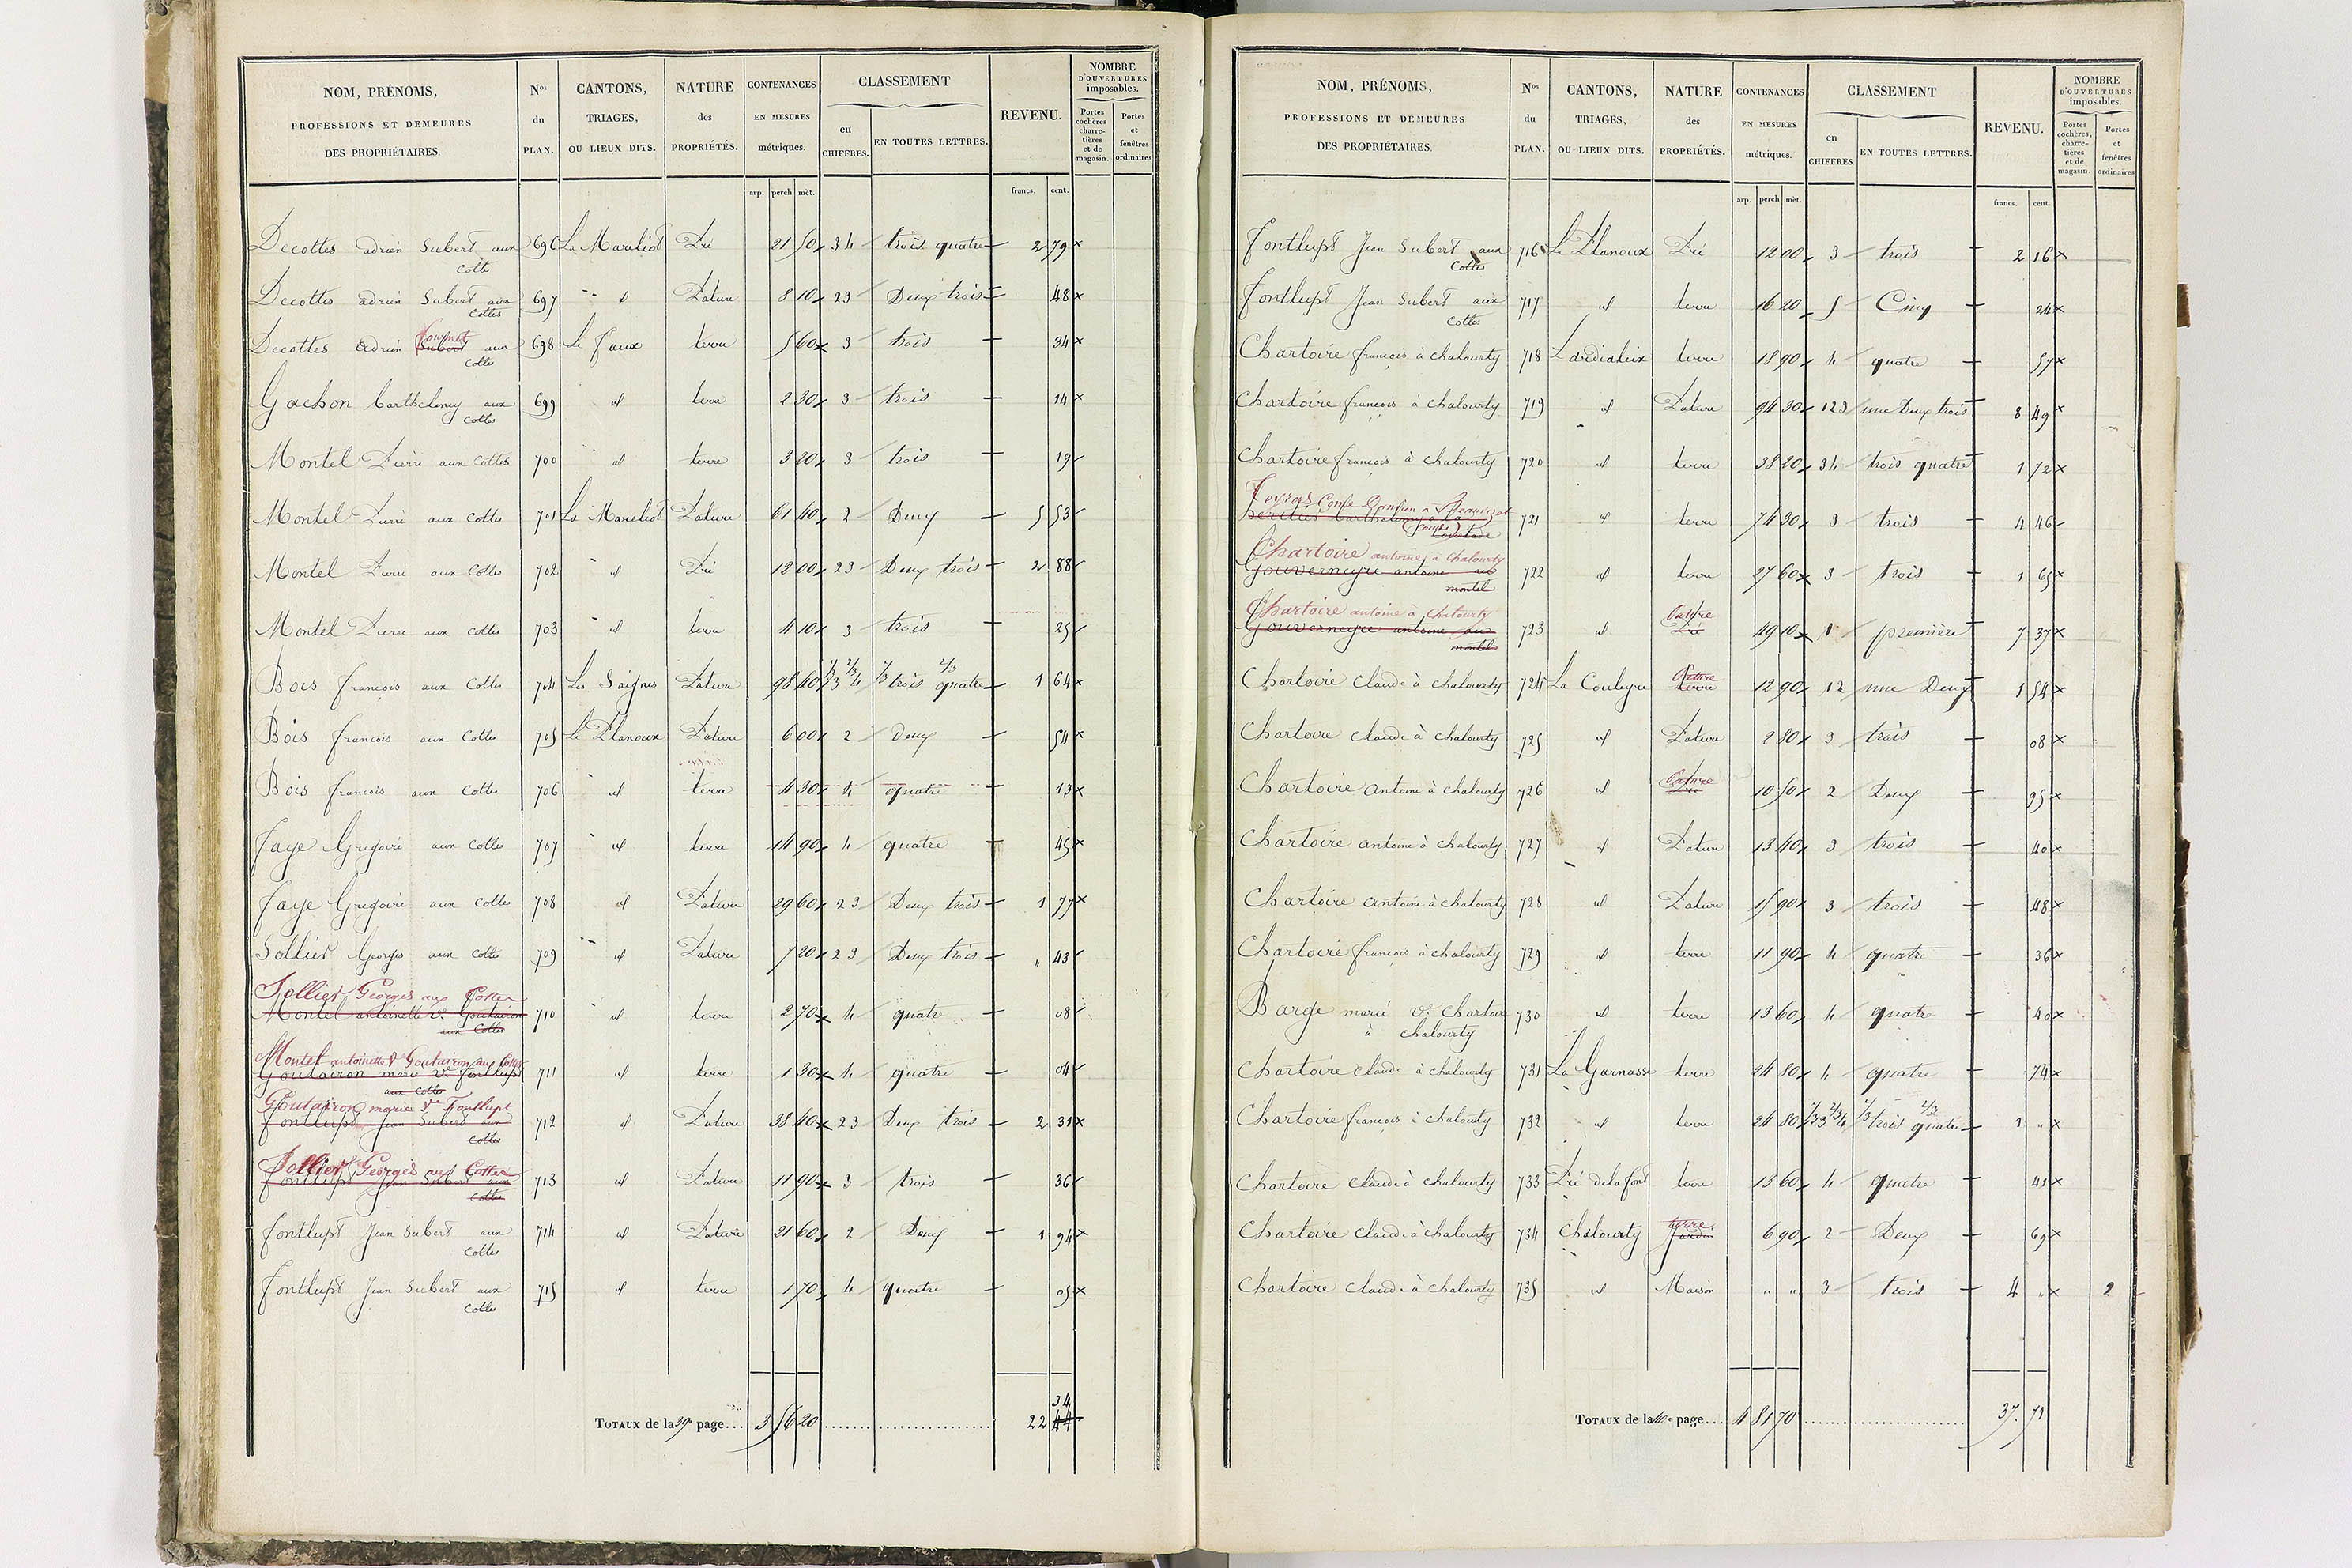 NOM, PRÉNOMS, PROFESSIONS ET DEMEURES DES PROPRIÉTAIRES. Nos du PLAN. CANTONS, TRIAGES, OU LIEUX DITS. NATURE des PROPRIÉTÉS. CONTENANCES EN MESURES métriques. CLASSEMENT en CHIFFRES. EN TOUTES LETTRES. REVENU. NOMBRE D'OUVERTURES imposables. Portes cochères charretières et de magasin. Portes et fenêtres ordinaires
arp. perch mèt. francs. cent.
Decottes adrien Subert aux Cottes 696 La Mareliod Pré 21 50 3 4 trois quatre 2 79
Decottes adrien Subert aux Cottes 697 id Pature 8 10 23 Deux trois 48
Decottes adrien Subert aux Cottes 698 Le faux terre 5 60 3 trois 34
Gachon Barthelemy aux Cottes 699 id terre 2 30 3 trois 14
Montel Pierre aux Cottes 700 id terre 3 20 3 trois 19
Montel Pierre aux Cottes 701 La Mareliod Pature 61 40 2 Deux 5 53
Montel Pierre aux Cottes 702 id Pré 12 00 23 Deux trois 2 88
Montel Pierre aux Cottes 703 id terre 4 10 3 trois 25
Bois francois aux Cottes 704 Les Saignes Pature 98 40 1/3 3 2/3 4 1/3 trois 2/3 quatre 1 64
Bois francois aux Cottes 705 Le Planoux Pature 6 00 2 Deux 54
Bois francois aux Cottes 706 id terre 4 30 4 quatre 13
Faye Gregoire aux Cottes 707 id terre 14 90 4 quatre 45
Faye Gregoire aux Cottes 708 id Pature 29 60 23 Deux trois 1 77
Sollier Georges aux Cottes 709 id Pature 7 20 23 Deux trois „ 43
Sollier Georges aux Cottes
Montel antoinette ve Goutairon aux Cottes 710 id terre 2 70 4 quatre 08
Montel antoinette Ve Goutairon aux Cottes
Goutairon marie ve fontlupt aux Cottes 711 id terre 1 30 4 quatre 04
Goutairon marie Ve Fontlupt
fontlupt Jean Subert aux Cottes 712 id Pature 38 40 23 Deux trois 2 31
Sollier Georges aux Cottes
fontlupt Jean Subert aux Cottes 713 id Pature 11 90 3 trois 36
fontlupt Jean Subert aux Cottes 714 id Pature 21 60 2 Deux 1 94
fontlupt Jean Subert aux Cottes 715 id terre 1 70 4 quatre 05
34
TOTAUX de la 39e page.... 3 56 20 22 44
NOM, PRÉNOMS, PROFESSIONS ET DEMEURES DES PROPRIÉTAIRES. Nos du PLAN. CANTONS, TRIAGES, OU LIEUX DITS. NATURE des PROPRIÉTÉS. CONTENANCES EN MESURES métriques. CLASSEMENT en CHIFFRES. EN TOUTES LETTRES. REVENU. NOMBRE D'OUVERTURES imposables. Portes cochères, charretières et de magasin. Portes et fenêtres ordinaires
arp. perch mèt. francs. cent.
fontlupt Jean Subert aux Cottes 716 Le Planoux Pré 12 00 3 trois 2 16
fontlupt Jean Subert aux Cottes 717 id terre 16 20 5 Cinq 24
Chartoire françois à chalourty 718 Lardialeix terre 18 90 4 quatre 57
Chartoire françois à chalourty 719 id Pature 94 30 123 une Deux trois 8 49
Chartoire françois à chalourty 720 id terre 38 20 34 trois quatre 1 72
721 id terre 74 30 3 trois 4 46
Chartoire antoine à chalourty
Gouverneyre antoine au montel 722 id terre 27 60 3 trois 1 65
Chartoire antoine à chalourty Pature
Gouverneyre antoine au montel 723 id Pré 49 10 1 première 7 37
Chartoire Claude à chalourty 724 La Couleyre Pature terre 12 90 12 une Deux 1 54
Chartoire Claude à chalourty 725 id Pature 2 80 3 trois 08
Chartoire Antoine à chalourty 726 id Pature Pré 10 50 2 Deux 95
Chartoire antoine à chalourty 727 id Pature 13 40 3 trois 40
Chartoire antoine à chalourty 728 id Pature 15 90 3 trois 48
Chartoire françois à chalourty 729 id terre 11 90 4 quatre 36
Barge marie ve Chartoire à chalourty 730 id terre 13 60 4 quatre 40
Chartoire Claude à chalourty 731 La Garnasse terre 24 80 4 quatre 74
Chartoire françois à chalourty 732 id terre 24 80 1/3 3 2/3 4 1/3 trois 2/3 quatre 1 „
Chartoire Claude à chalourty 733 Pré de la font terre 13 60 4 quatre 41
Chartoire Claude à chalourty 734 Chalourty Jardin 6 90 2 Deux 69
Chartoire Claude à chalourty 735 id Maison „ „ 3 trois 4 „ 2
TOTAUX de la 40e page.... 4 81 70 37. 71